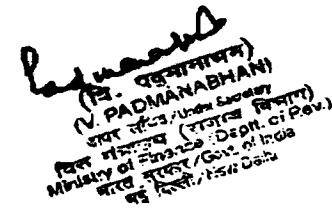 Padmanabh
(वि. पद्मनाभन)
(V. PADMANABHAN)
अवर सचिव/Under Secretary
वित्त मंत्रालय (राजस्व विभाग)
Ministry of Finance (Deptt. of Rev.)
भारत सरकार/Govt. of India
नई दिल्ली/New Delhi